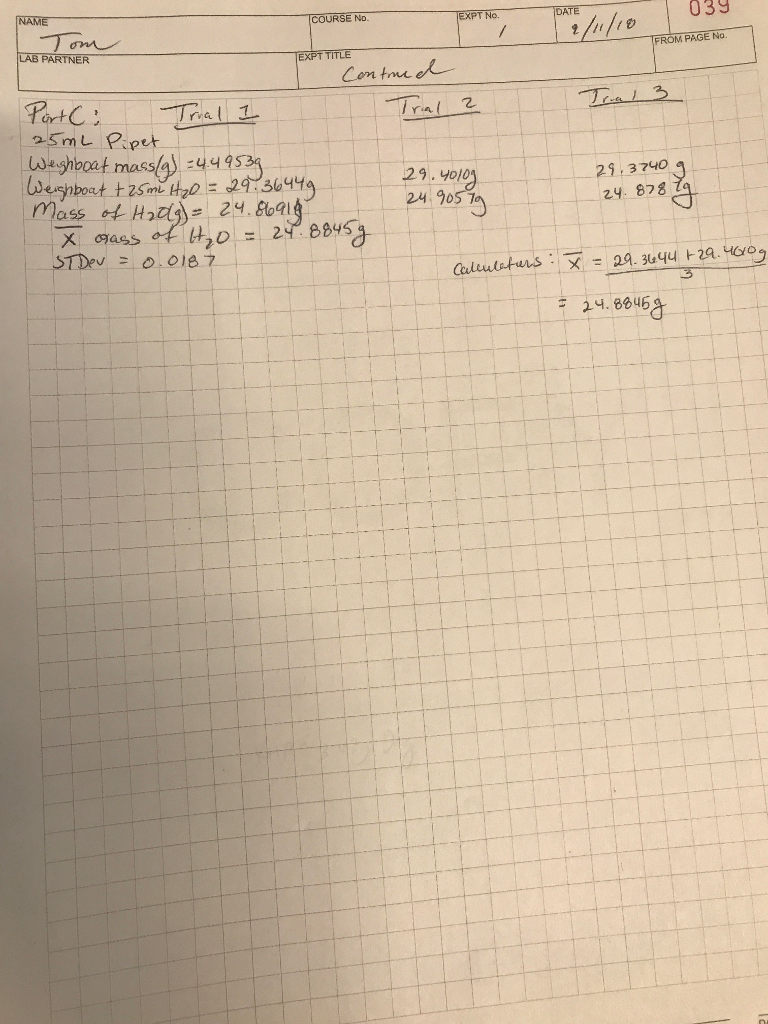 039
NAME COURSE No. EXPT No. DATE
Tom 1 2/11/18
LAB PARTNER EXPT TITLE FROM PAGE No.
Contnued
Part C: Trial 1 Trial 2 Trial 3
25mL Pipet
Weighboat mass(g) = 4.4953g
Weighboat + 25mL H2O = 29.3644g 29.4010g 29.3740 g
Mass of H2O(g) = 24.8691g 24.9057g 24.8787g
X̅ mass of H2O = 24.8845g
STDev = 0.0187
Calculations: X̅ = 29.3644 + 29.4010g
3
= 24.8845g